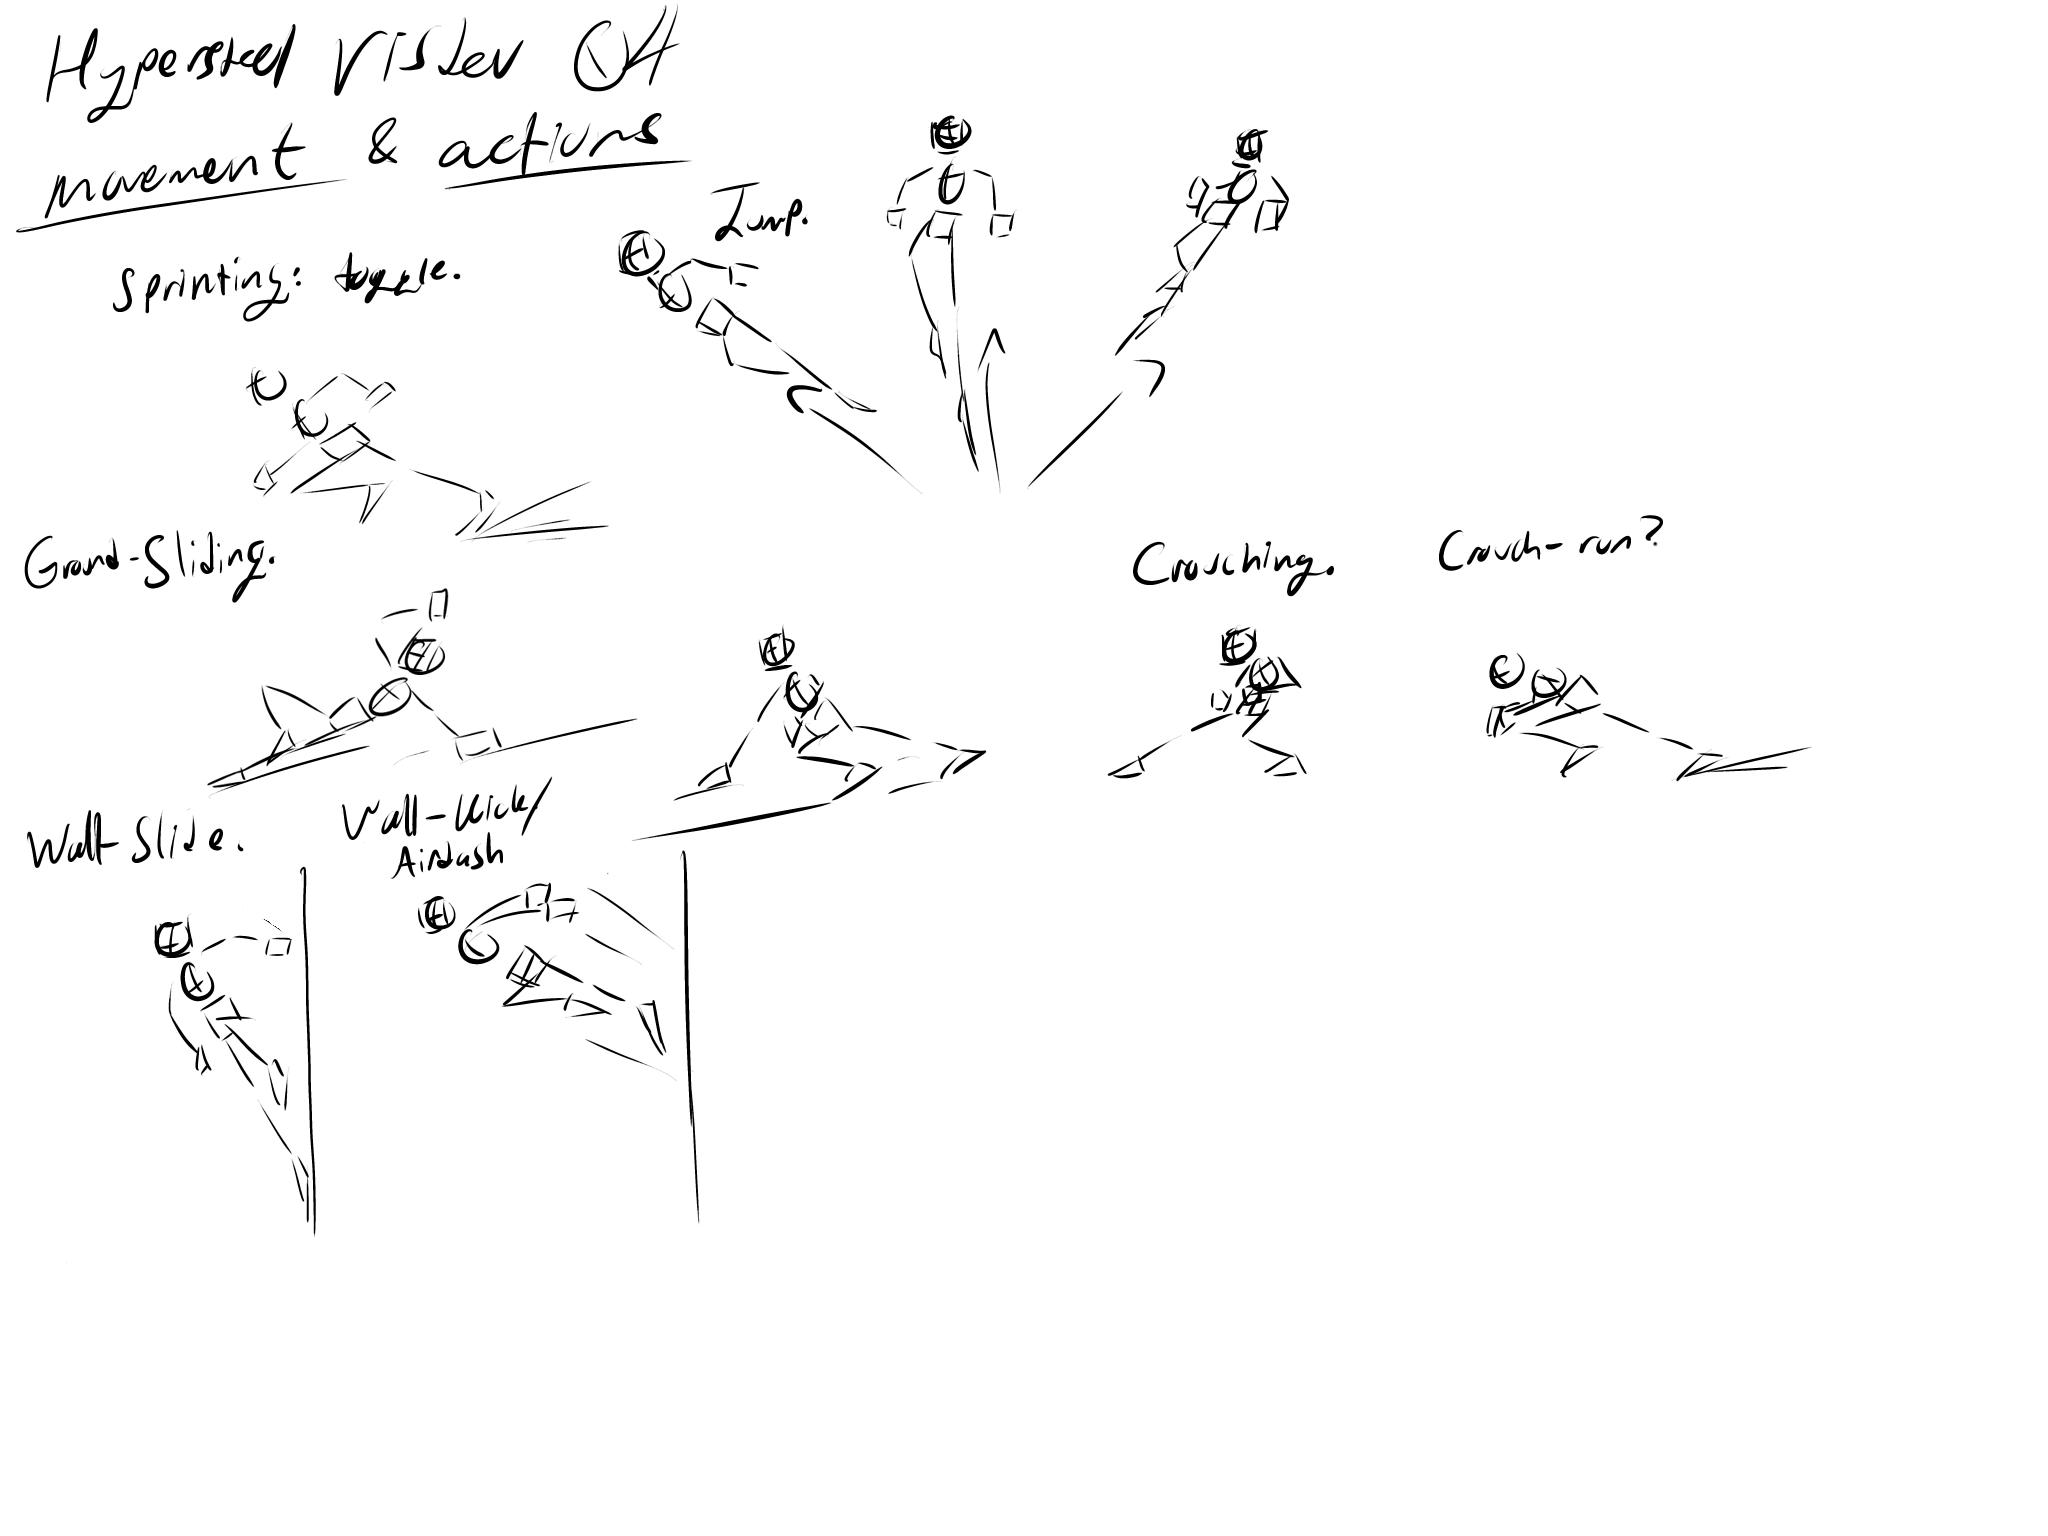 Hypersteel Visdev 04
movement & actions
Sprinting: toggle.
Jump.
Ground-Sliding.
Crouching.
Crouch-run?
Wall-Slide.
Wall-kick/
Airdash